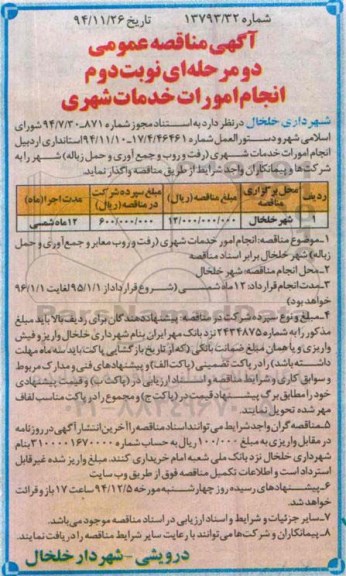 شماره ۱۳۷۹۳/۳۲ تاریخ ۹۴/۱۱/۲۶
آگهی مناقصه عمومی
دو مرحله‌ای نوبت دوم
انجام امورات خدمات شهری
شهرداری خلخال در نظر دارد به استناد مجوز شماره ۸۷۱-۹۴/۷/۳۰ شورای
اسلامی شهر و دستورالعمل شماره ۱۷/۴/۴۶۴۶۱-۹۴/۱۱/۱۰ استانداری اردبیل
انجام امورات خدمات شهری (رفت و روب و جمع آوری و حمل زباله) شهر را به
شرکت‌ها و پیمانکاران واجد شرایط از طریق مناقصه واگذار نماید.
ردیف محل برگزاری مناقصه مبلغ مناقصه (ریال) مبلغ سپرده شرکت در مناقصه (ریال) مدت اجرا (ماه)
۱ شهر خلخال ۱۲/۰۰۰/۰۰۰/۰۰۰ ۶۰۰/۰۰۰/۰۰۰ ۱۲ ماه شمسی
۱-موضوع مناقصه: انجام امور خدمات شهری (رفت و روب معابر و جمع آوری و حمل
زباله) شهر خلخال برابر اسناد مناقصه
۲-محل انجام مناقصه: شهر خلخال
۳-مدت انجام قرارداد: ۱۲ ماه شمسی (شروع قرارداد از ۹۵/۱/۱ لغایت ۹۶/۱/۱
خواهد بود)
۴-مبلغ و نوع سپرده شرکت در مناقصه: پیشنهاددهندگان برای ردیف بالا باید مبلغ
مذکور را به شماره ۲۴۳۴۸۷۵ نزد بانک مهر ایران بنام شهرداری خلخال واریز و فیش
واریزی و یا همان مبلغ ضمانت بانکی (که از تاریخ بازگشایی پاکت باید سه ماه مهلت
داشته باشد) را در پاکت تضمینی (پاکت الف) و پیشنهادهای فنی و مدارک مربوط
و سوابق کاری و شرایط مناقصه و اسناد ارزیابی در (پاکت ب) و قیمت پیشنهادی
خود را مطابق برگ پیشنهاد قیمت در (پاکت ج) و مجموع را در پاکت مناسب لفاف
مهر شده تحویل نمایند.
۵-مناقصه گران واجد شرایط می‌توانند اسناد مناقصه را از آخرین انتشار آگهی در روزنامه
در مقابل واریزی به مبلغ ۱۰۰/۰۰۰ ریال به حساب شماره ۳۱۰۰۰۰۱۶۷۰۰۰۰ بنام
شهرداری خلخال نزد بانک ملی شعبه امام خریداری کنند. مبلغ واریز شده غیر قابل
استرداد است و اطلاعات تکمیل مناقصه فوق از طریق وب سایت
۶-پیشنهادهای رسیده روز چهارشنبه مورخه ۹۴/۱۲/۵ ساعت ۱۷ باز و قرائت
خواهد شد.
۷-سایر جزئیات و شرایط و اسناد ارزیابی در اسناد مناقصه موجود می‌باشد.
۸-پیمانکاران و شرکت‌ها می‌توانند با رعایت سایر شرایط مناقصه را دریافت نمایند.
درویشی-شهردار خلخال